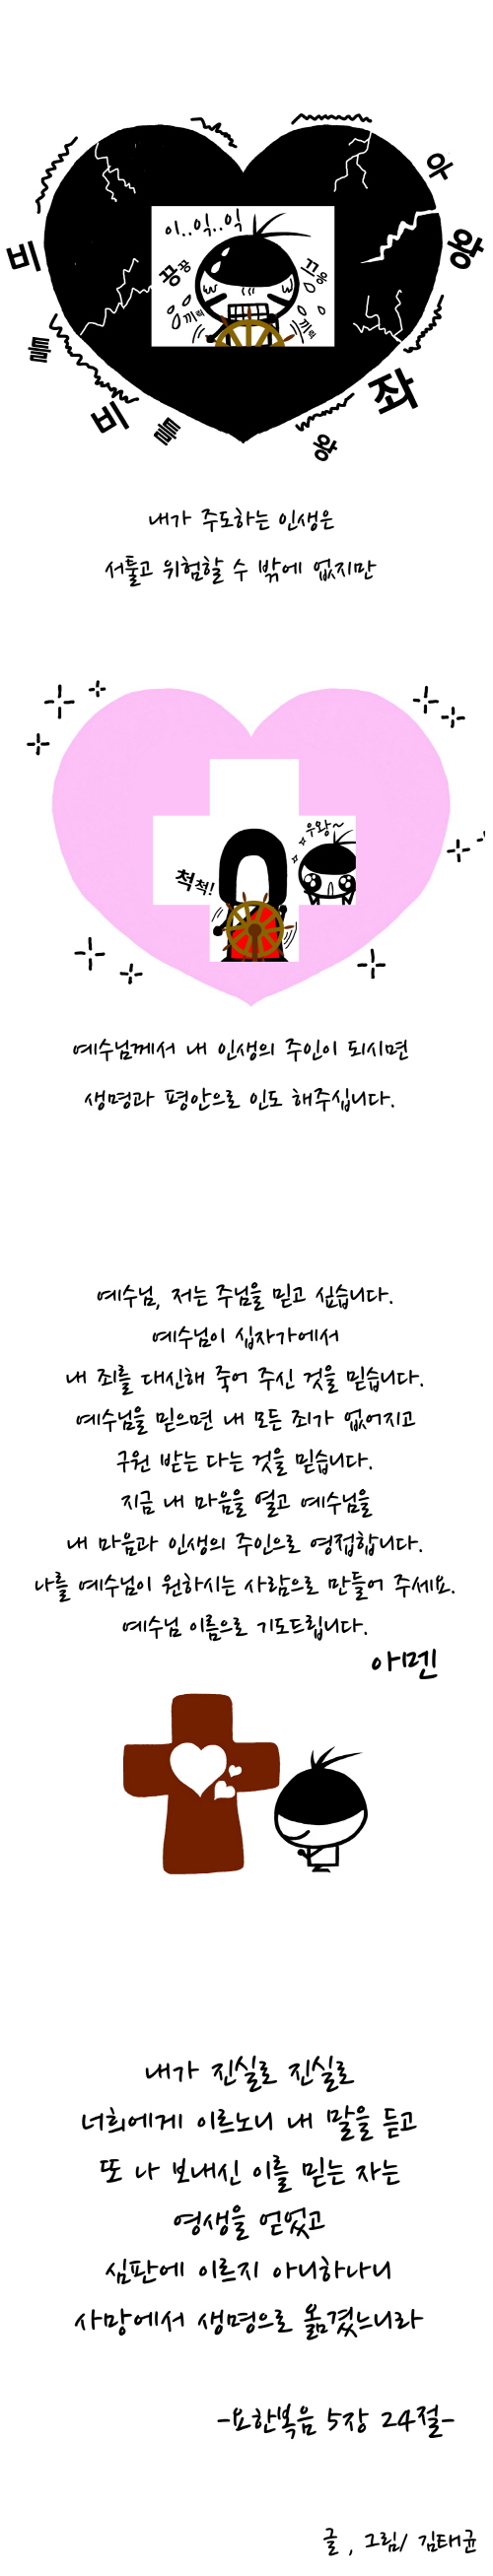 이..익..익
아
왕
비
끙끙
끄응
끼릭
끼릭
틀
비
틀
좌
왕
내가 주도하는 인생은
서툴고 위험할 수 밖에 없지만
우왕~
척척!
예수님께서 내 인생의 주인이 되시면
생명과 평안으로 인도 해주십니다.
예수님, 저는 주님을 믿고 싶습니다.
예수님이 십자가에서
내 죄를 대신해 죽어 주신 것을 믿습니다.
예수님을 믿으면 내 모든 죄가 없어지고
구원 받는 다는 것을 믿습니다.
지금 내 마음을 열고 예수님을
내 마음과 인생의 주인으로 영접합니다.
나를 예수님이 원하시는 사람으로 만들어 주세요.
예수님 이름으로 기도드립니다.
아멘
내가 진실로 진실로
너희에게 이르노니 내 말을 듣고
또 나 보내신 이를 믿는 자는
영생을 얻었고
심판에 이르지 아니하나니
사망에서 생명으로 옮겼느니라
-요한복음 5장 24절-
글 , 그림/ 김태균